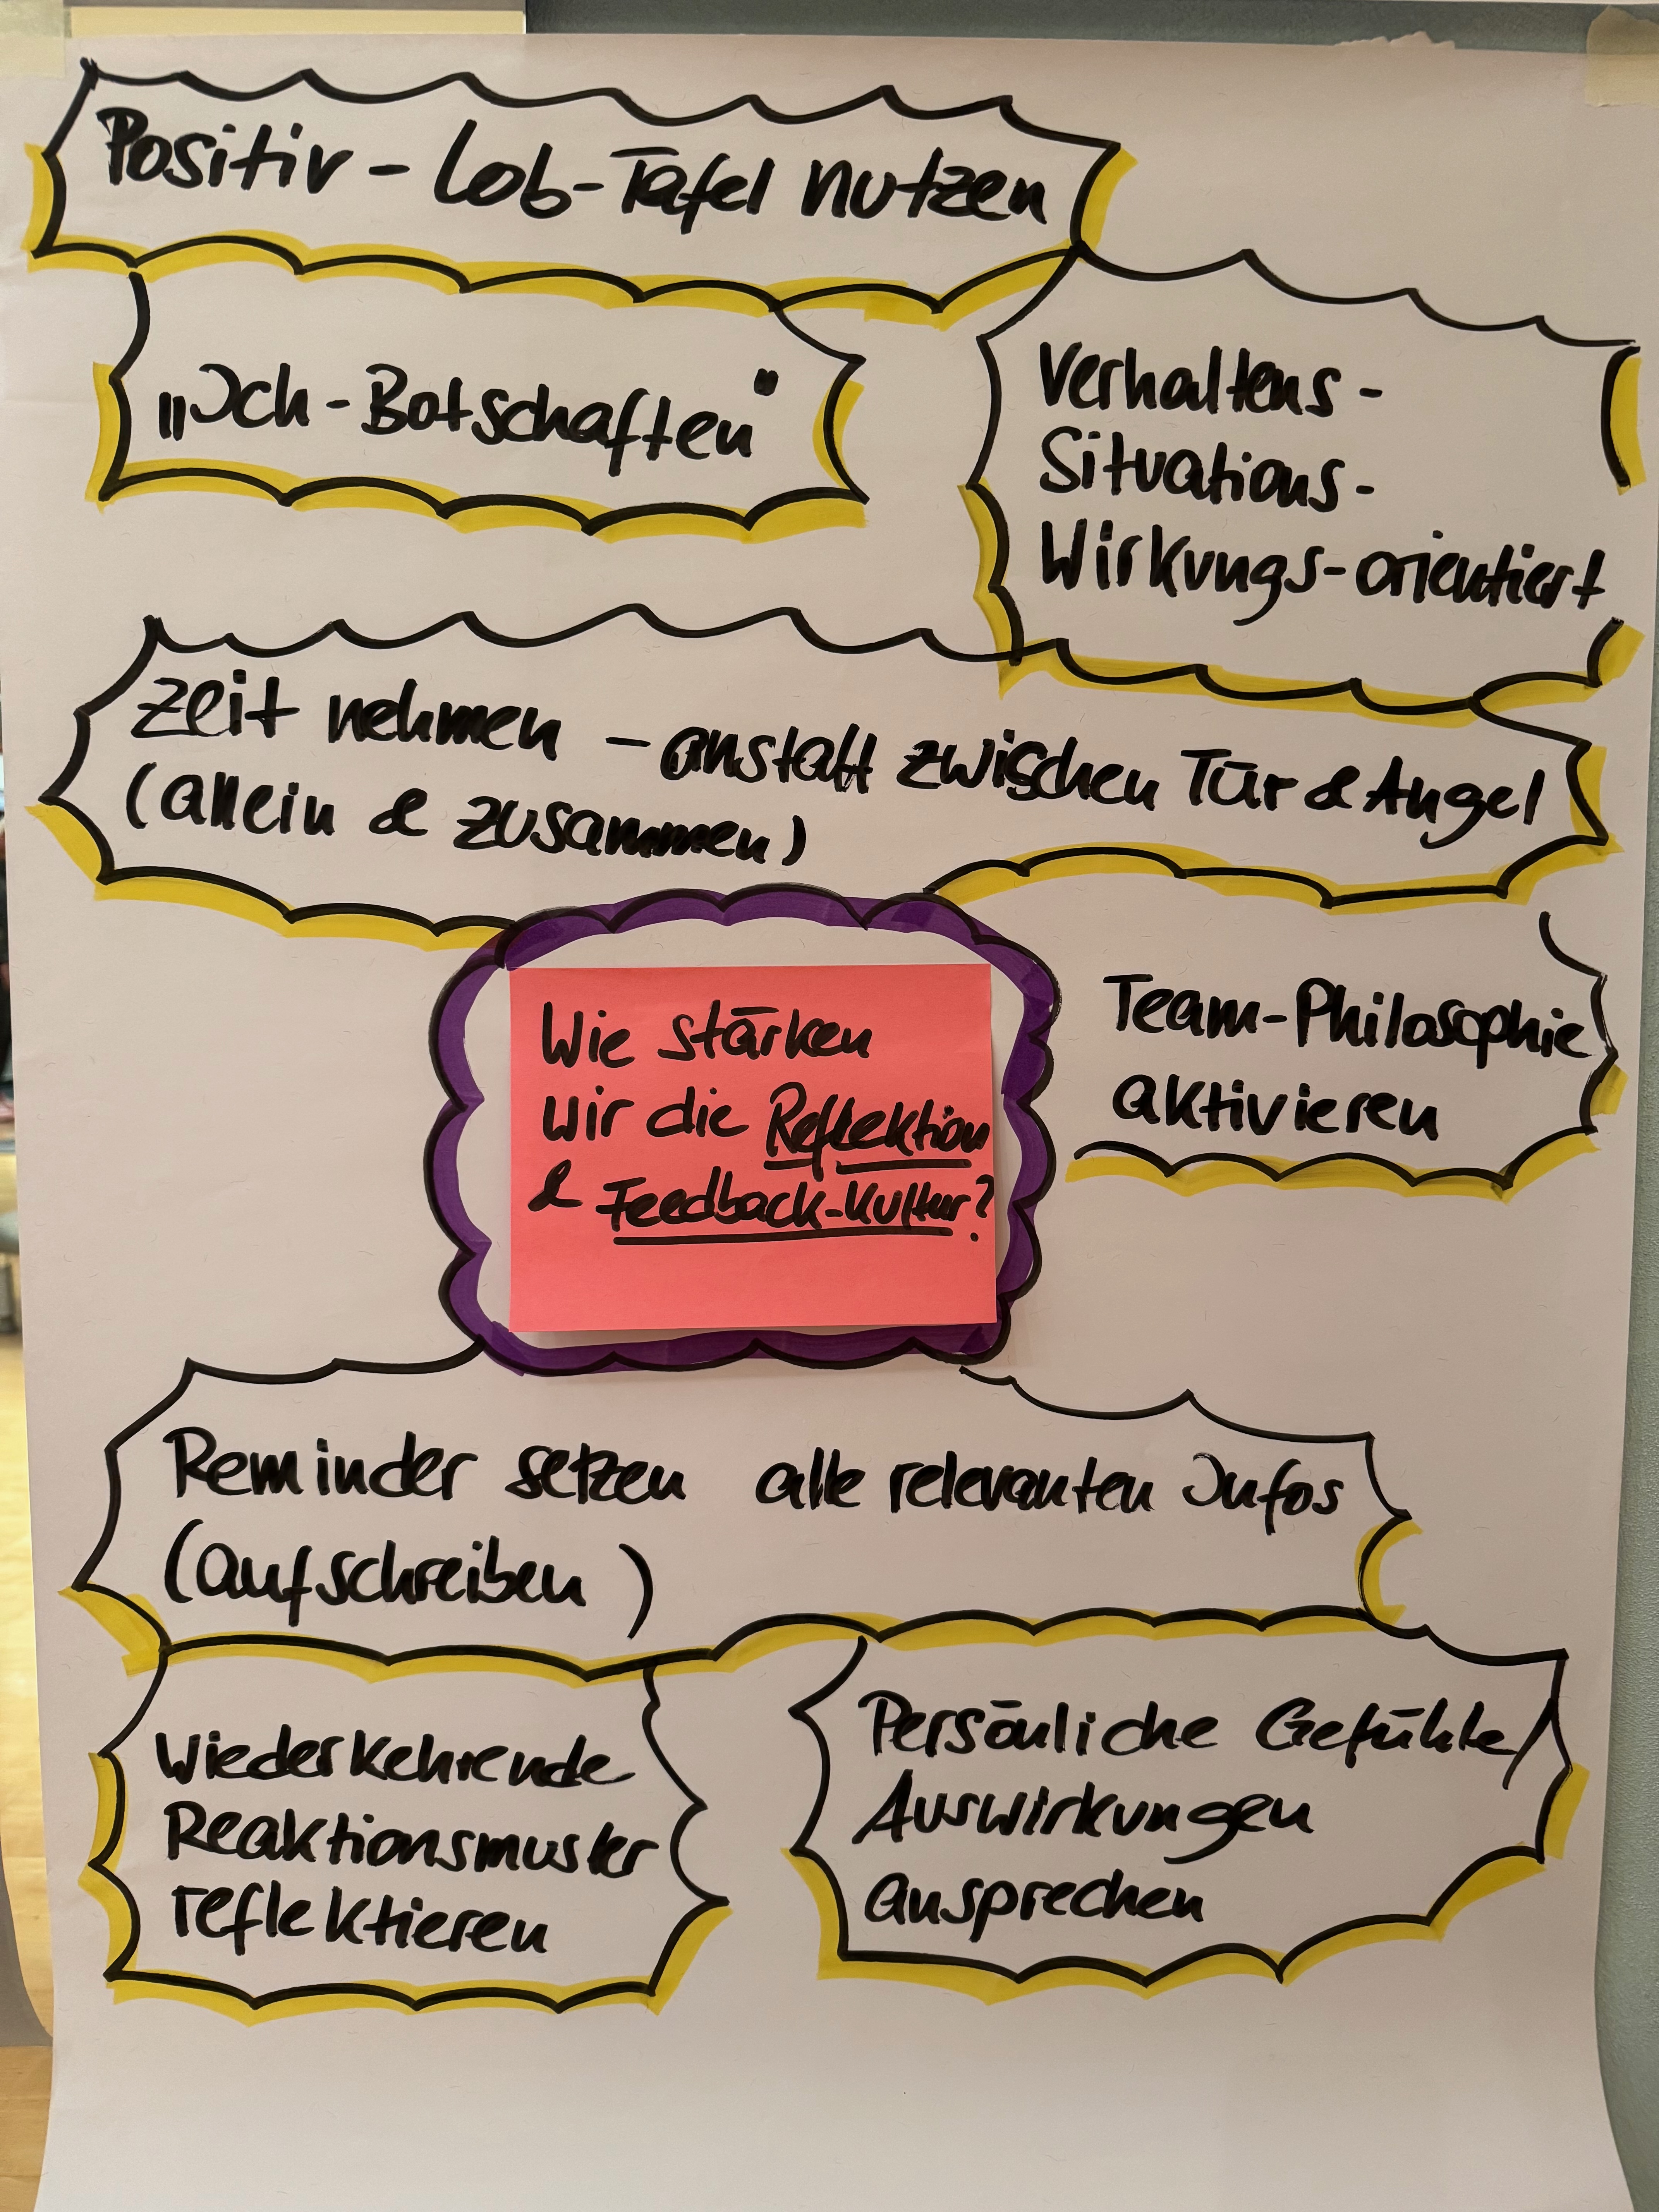 Positiv - Lob-Tafel nutzen
„Ich-Botschaften"
Verhaltens-
Situations-
Wirkungs-orientiert
Zeit nehmen - anstatt zwischen Tür & Angel
(allein & zusammen)
Wie stärken
wir die Reflektion
& Feedback-Kultur?
Team-Philosophie
aktivieren
Reminder setzen alle relevanten Infos
(aufschreiben)
Wiederkehrende
Reaktionsmuster
reflektieren
Persönliche Gefühle/
Auswirkungen
ansprechen